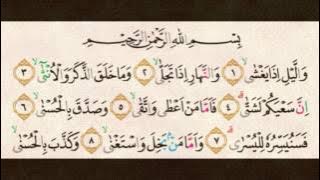 بِسْمِ اللّٰهِ الرَّحْمٰنِ الرَّحِيْمِ
وَالَّيْلِ اِذَا يَغْشٰىۙ ١ وَالنَّهَارِ اِذَا تَجَلّٰىۙ ٢ وَمَا خَلَقَ الذَّكَرَ وَالْاُنْثٰىٓۙ ٣
اِنَّ سَعْيَكُمْ لَشَتّٰىۗ ٤ فَاَمَّا مَنْ اَعْطٰى وَاتَّقٰىۙ ٥ وَصَدَّقَ بِالْحُسْنٰىۙ ٦
فَسَنُيَسِّرُهٗ لِلْيُسْرٰىۗ ٧ وَاَمَّا مَنْۢ بَخِلَ وَاسْتَغْنٰىۙ ٨ وَكَذَّبَ بِالْحُسْنٰىۙ